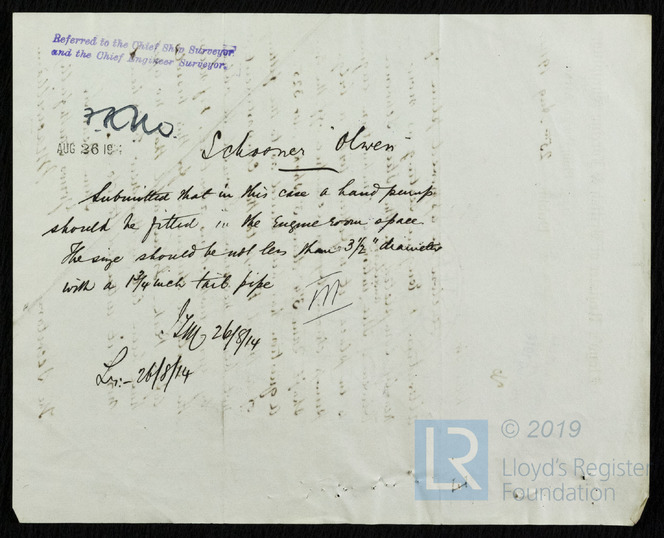 Referred to the Chief Ship Surveyor
and the Chief Engineer Surveyor.
AUG 26 19
Schooner "Olwen"
Submitted that in this case a hand pump
should be fitted in the engine room space
The size should be not less than 3½" diameter
with a 1¾ inch tail pipe
26/8/14
Lr:- 26/8/14
LR
© 2019
Lloyd's Register
Foundation